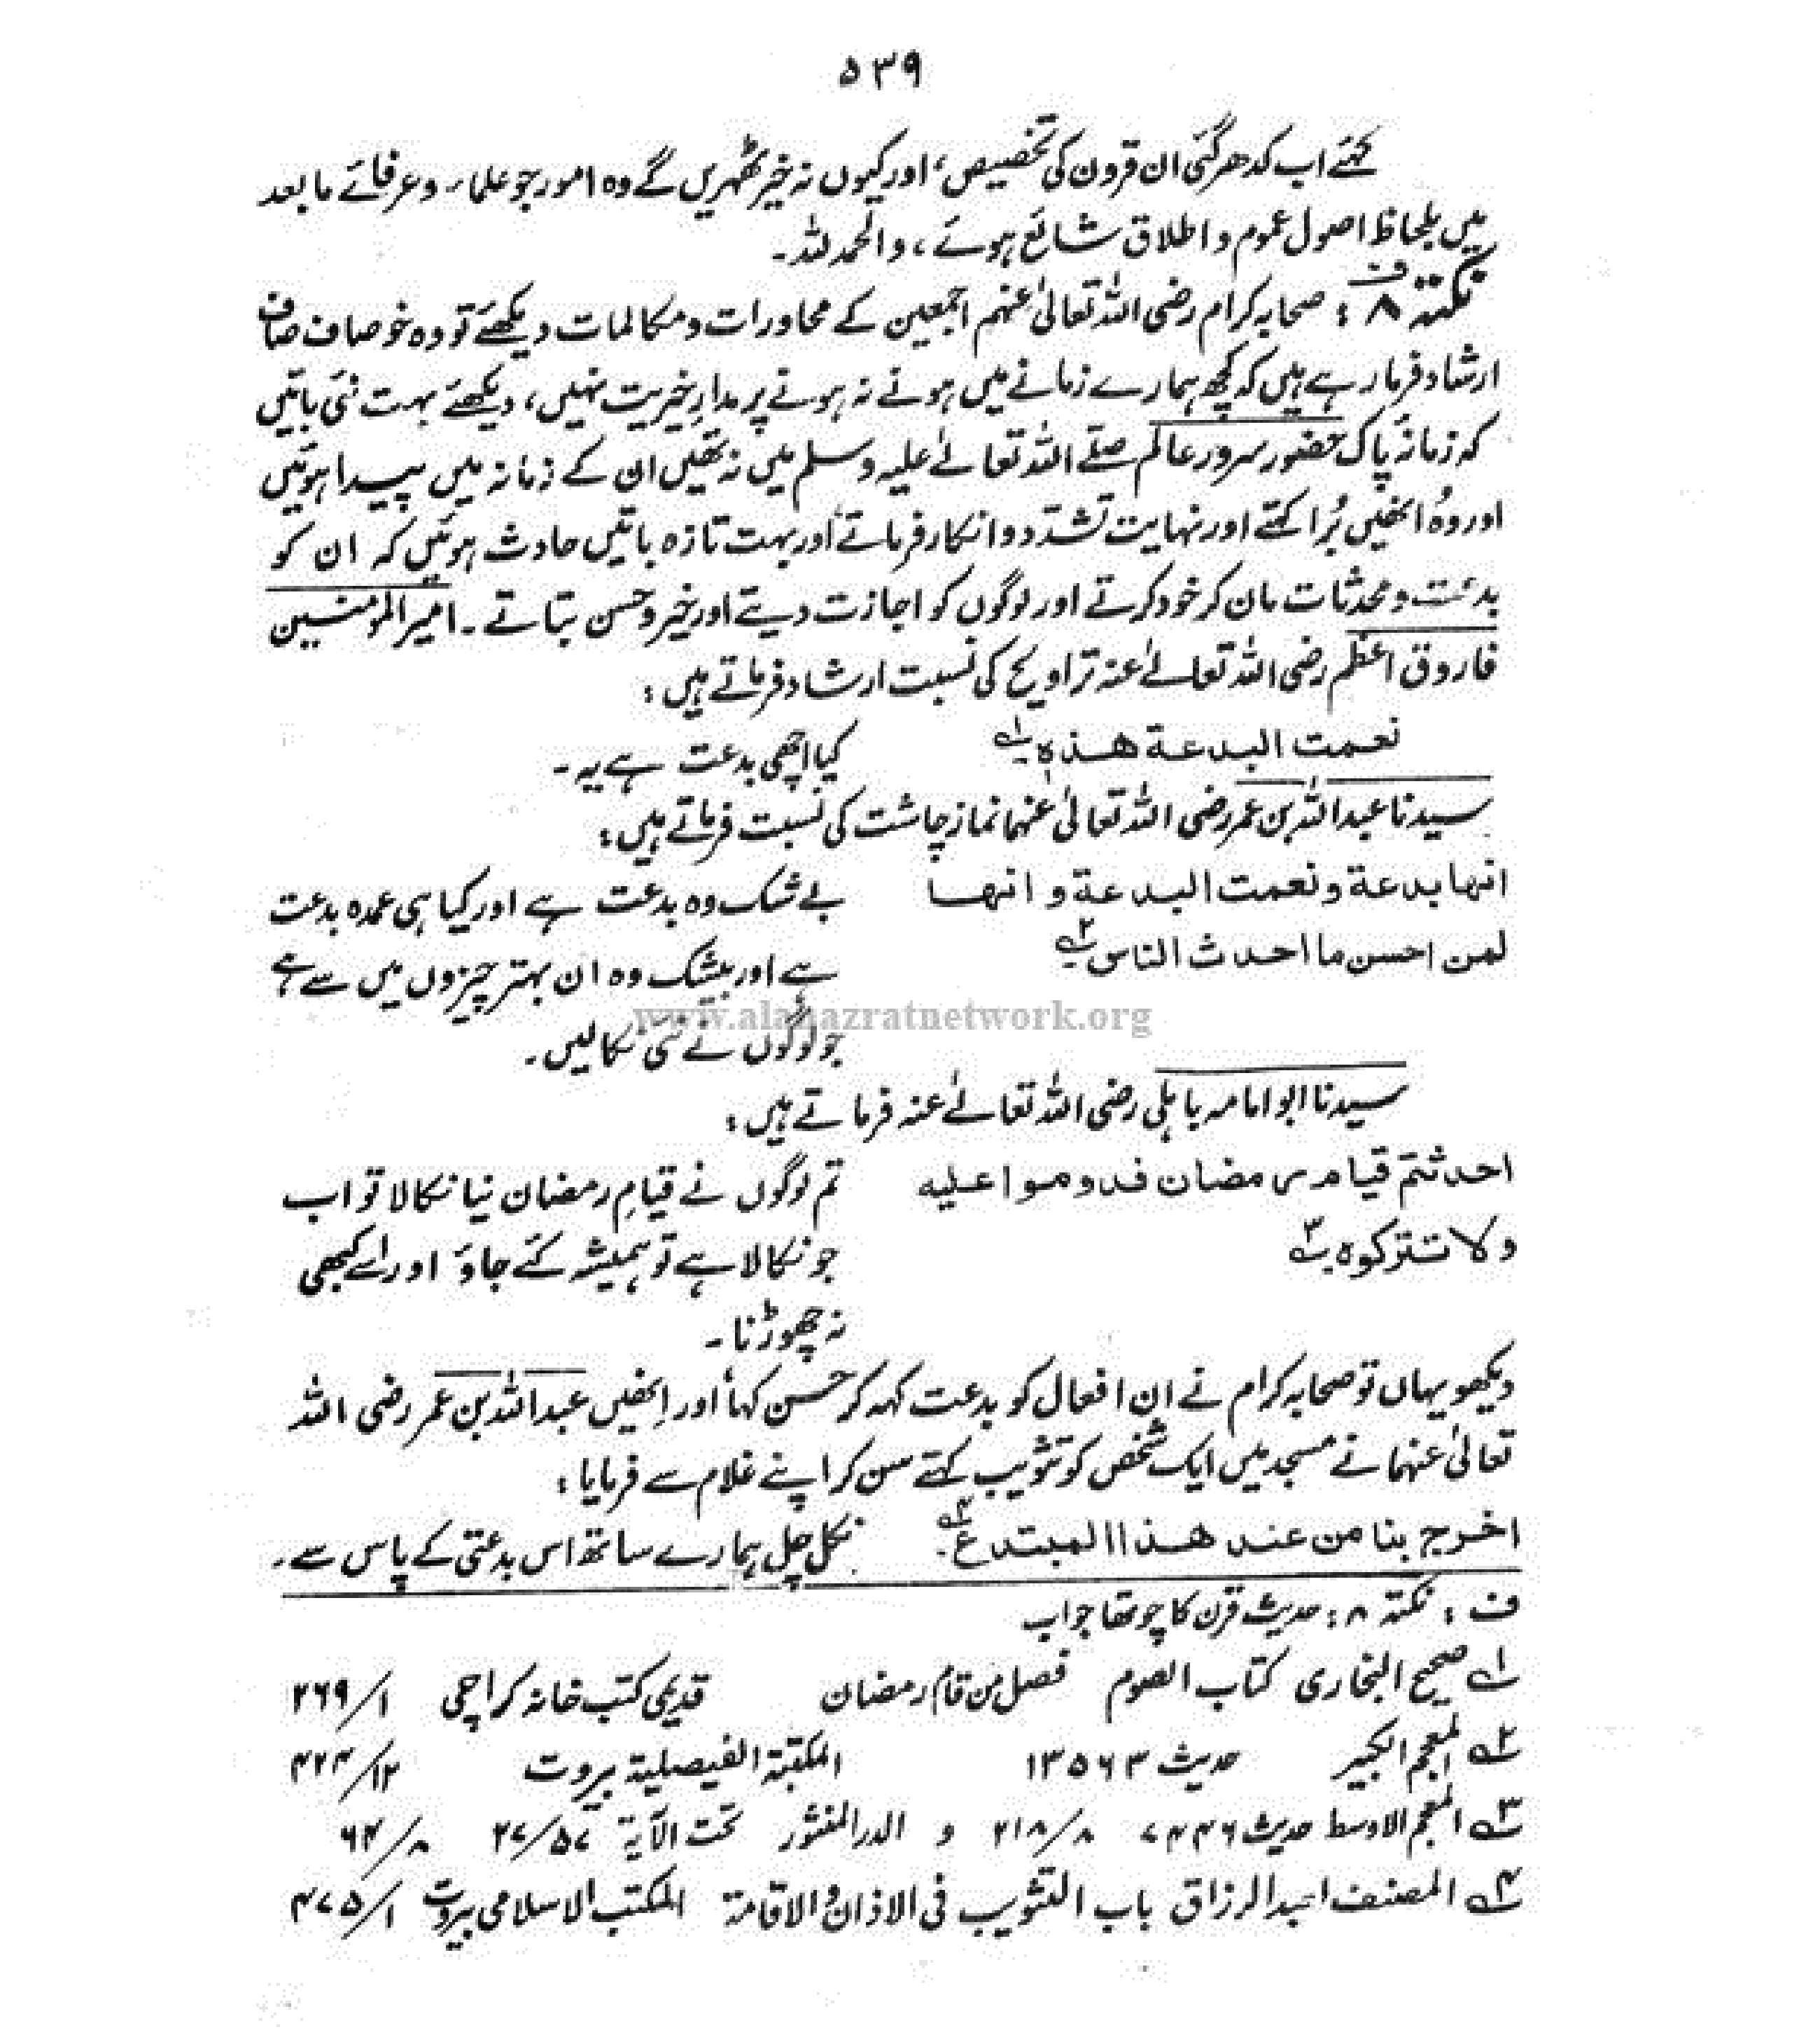 ۵۳۹
کہئے اب کدھر گئی ان قرون کی تخصیص، اور کیوں نہ خیر ٹھہریں گے وہ امور جو علماء و عرفائے مابعد
میں بلحاظ اصول عموم و اطلاق شائع ہوئے، والحمد للہ۔
نکتہ ۸ ف: صحابہ کرام رضی اللہ تعالٰی عنہم اجمعین کے محاورات و مکالمات دیکھئے تو وہ خود صاف صاف
ارشاد فرما رہے ہیں کہ کچھ ہمارے زمانے میں ہونے نہ ہونے پر مدارِ خیریت نہیں، دیکھئے بہت نئی باتیں
کہ زمانہ پاک حضور سرور عالم صلے اللہ تعالٰے علیہ وسلم میں نہ تھیں ان کے زمانہ میں پیدا ہوئیں
اور وہ انھیں بُرا کہتے اور نہایت تشدد و انکار فرماتے اور بہت تازہ باتیں حادث ہوئیں کہ ان کو
بدعت و محدثات مان کر خود کرتے اور لوگوں کو اجازت دیتے اور خیر و حسن بتاتے۔ امیر المومنین
فاروق اعظم رضی اللہ تعالٰے عنہ تراویح کی نسبت ارشاد فرماتے ہیں:
نعمت البدعة هذہ ۱ کیا اچھی بدعت ہے یہ۔
سیدنا عبد اللہ بن عمر رضی اللہ تعالٰی عنہما نماز چاشت کی نسبت فرماتے ہیں:
انہا بدعة و نعمت البدعة و انہا بے شک وہ بدعت ہے اور کیا ہی عمدہ بدعت
لمن احسن ما احدث الناس ۲ ہے اور بیشک وہ ان بہتر چیزوں میں سے ہے
جو لوگوں نے نئی نکالیں۔
www.alahazratnetwork.org
سیدنا ابو امامہ باہلی رضی اللہ تعالٰے عنہ فرماتے ہیں:
احدثتم قیام رمضان فدوموا علیہ تم لوگوں نے قیامِ رمضان نیا نکالا تو اب
ولا تترکوہ ۳ جو نکالا ہے تو ہمیشہ کئے جاؤ اور اسے کبھی
نہ چھوڑنا۔
دیکھو یہاں تو صحابہ کرام نے ان افعال کو بدعت کہہ کر حسن کہا اور انھیں عبد اللہ بن عمر رضی اللہ
تعالٰی عنہما نے مسجد میں ایک شخص کو تثویب کہتے سن کر اپنے غلام سے فرمایا:
اخرج بنا من عند هذا المبتدع ۴ نکل چل ہمارے ساتھ اس بدعتی کے پاس سے۔
ف: نکتہ ۸: حدیث قرن کا چوتھا جواب
۱ صحیح البخاری کتاب الصوم فصل من قام رمضان قدیمی کتب خانہ کراچی ۱/ ۲۶۹
۲ المعجم الکبیر حدیث ۱۳۵۶۳ المکتبۃ الفیصلیۃ بیروت ۱۲/ ۴۲۴
۳ المعجم الاوسط حدیث ۷۴۴۶ ۸/ ۲۱۸ و الدر المنثور تحت الآیۃ ۵۷/ ۲۷ ۸/ ۶۴
۴ المصنف لعبد الرزاق باب التثویب فی الاذان والاقامۃ المکتب الاسلامی بیروت ۱/ ۴۷۵